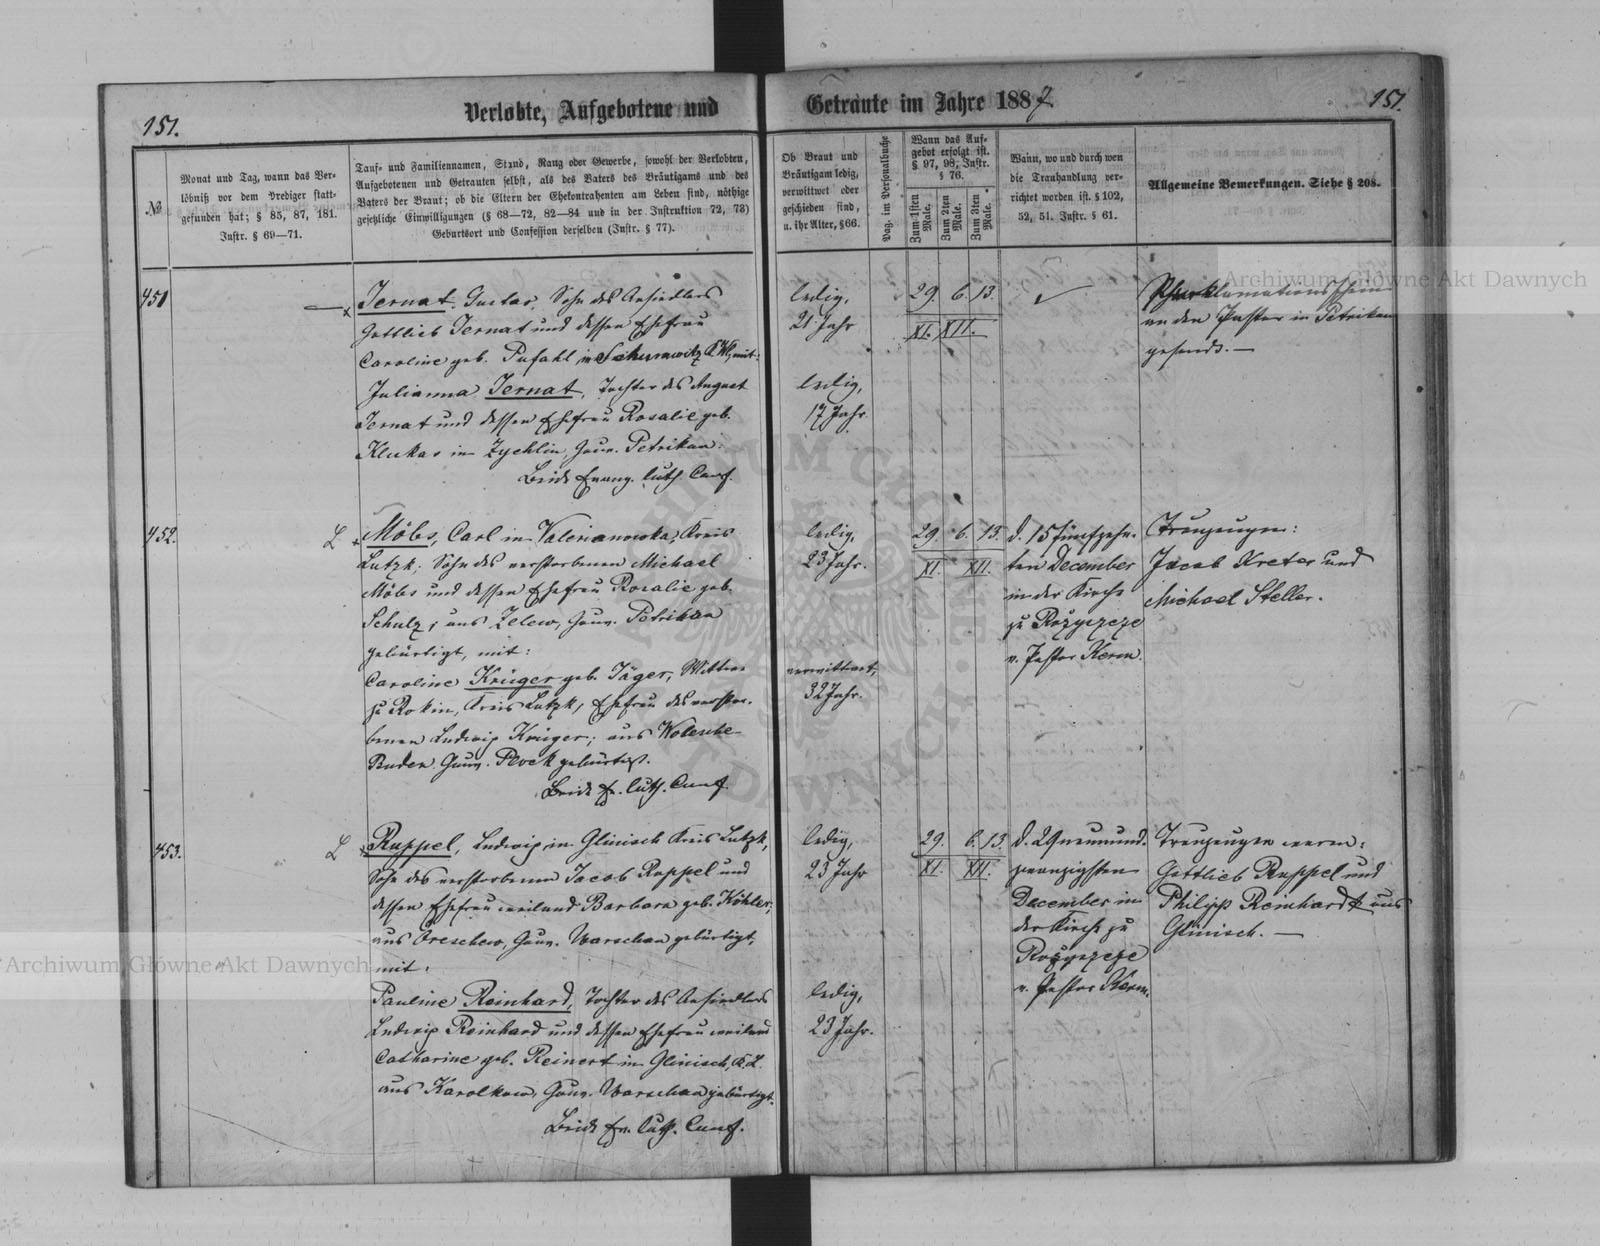 151.
Verlobte, Aufgebotene und
Getraute im Jahre 1887
151.
№
Monat und Tag, wann das Ver-
löbniß vor dem Prediger statt-
gefunden hat; § 85, 87, 181.
Instr. § 69—71.
Tauf- und Familiennamen, Stand, Rang oder Gewerbe, sowohl der Verlobten,
Aufgebotenen und Getrauten selbst, als des Vaters des Bräutigams und des
Vaters der Braut; ob die Eltern der Ehekontrahenten am Leben sind, nöthige
gesetzliche Einwilligungen (§ 68—72, 82—84 und in der Instruktion 72, 73)
Geburtsort und Confession derselben (Instr. § 77).
Ob Braut und
Bräutigam ledig,
verwittwet oder
geschieden sind,
u. ihr Alter, § 66.
Pag. im Personalbuche
Wann das Auf-
gebot erfolgt ist.
§ 97, 98, Instr.
§ 76.
Zum 1sten Male.
Zum 2ten Male.
Zum 3ten Male.
Wann, wo und durch wen
die Trauhandlung ver-
richtet worden ist. § 102,
52, 51. Instr. § 61.
Allgemeine Bemerkungen. Siehe § 208.
451
Jernat, Gustav, Sohn des Ansiedlers
Gottlieb Jernat und dessen Ehefrau
Caroline geb. Pufahl in mit:
Julianna Jernat, Tochter des August
Jernat und dessen Ehefrau Rosalie geb.
Klukas in Zychlin, Gouv. Petrikau.
Beide Evang. luth. Conf.
ledig,
21 Jahr
ledig,
17 Jahr.
29. 6. 13.
XI. XII.
Proklamationsschein
an den Pastor in Petrikau
gesandt. —
452.
L
Möbs, Carl in Valerianowka, Kreis
Lutzk; Sohn des verstorbenen Michael
Möbs und dessen Ehefrau Rosalie geb.
Schulz, aus Zelew, Gouv. Petrikau
gebürtigt, mit:
Caroline Krüger geb. Jäger, Wittwe
zu Rokin, Kreis Lutzk, Ehefrau des verstor-
benen Ludwig Krüger; aus
Buden Gouv. Plock gebürtigt.
Beide Ev. luth. Conf.
ledig,
23 Jahr.
verwittwet,
32 Jahr.
29. 6. 13.
XI. XII.
d. 15 fünfzehn-
ten December
in der Kirche
zu Rożyszcze
v. Pastor Kerm.
Trauzeugen:
Jacob Kreter und
Michael Steller.
453.
L
Ruppel, Ludwig in Glinisch Kreis Lutzk,
Sohn des verstorbenen Jacob Ruppel und
dessen Ehefrau weiland Barbara geb. Köhler,
aus Oreschew, Gouv. Warschau gebürtigt,
mit:
Pauline Reinhard, Tochter des Ansiedlers
Ludwig Reinhard und dessen Ehefrau weiland
Catharine geb. Reinert in Glinisch, K. L.
aus Karolkow, Gouv. Warschau gebürtigt.
Beide Ev. luth. Conf.
ledig,
23 Jahr
ledig,
23 Jahr.
29. 6. 13.
XI. XII.
d. 29 neunund-
zwanzigsten
December in
der Kirche zu
Rożyszcze
v. Pastor Kerm.
Trauzeugen waren:
Gottlieb Ruppel und
Philipp Reinhardt aus
Glinisch. —
Archiwum Główne Akt Dawnych
Archiwum Główne Akt Dawnych